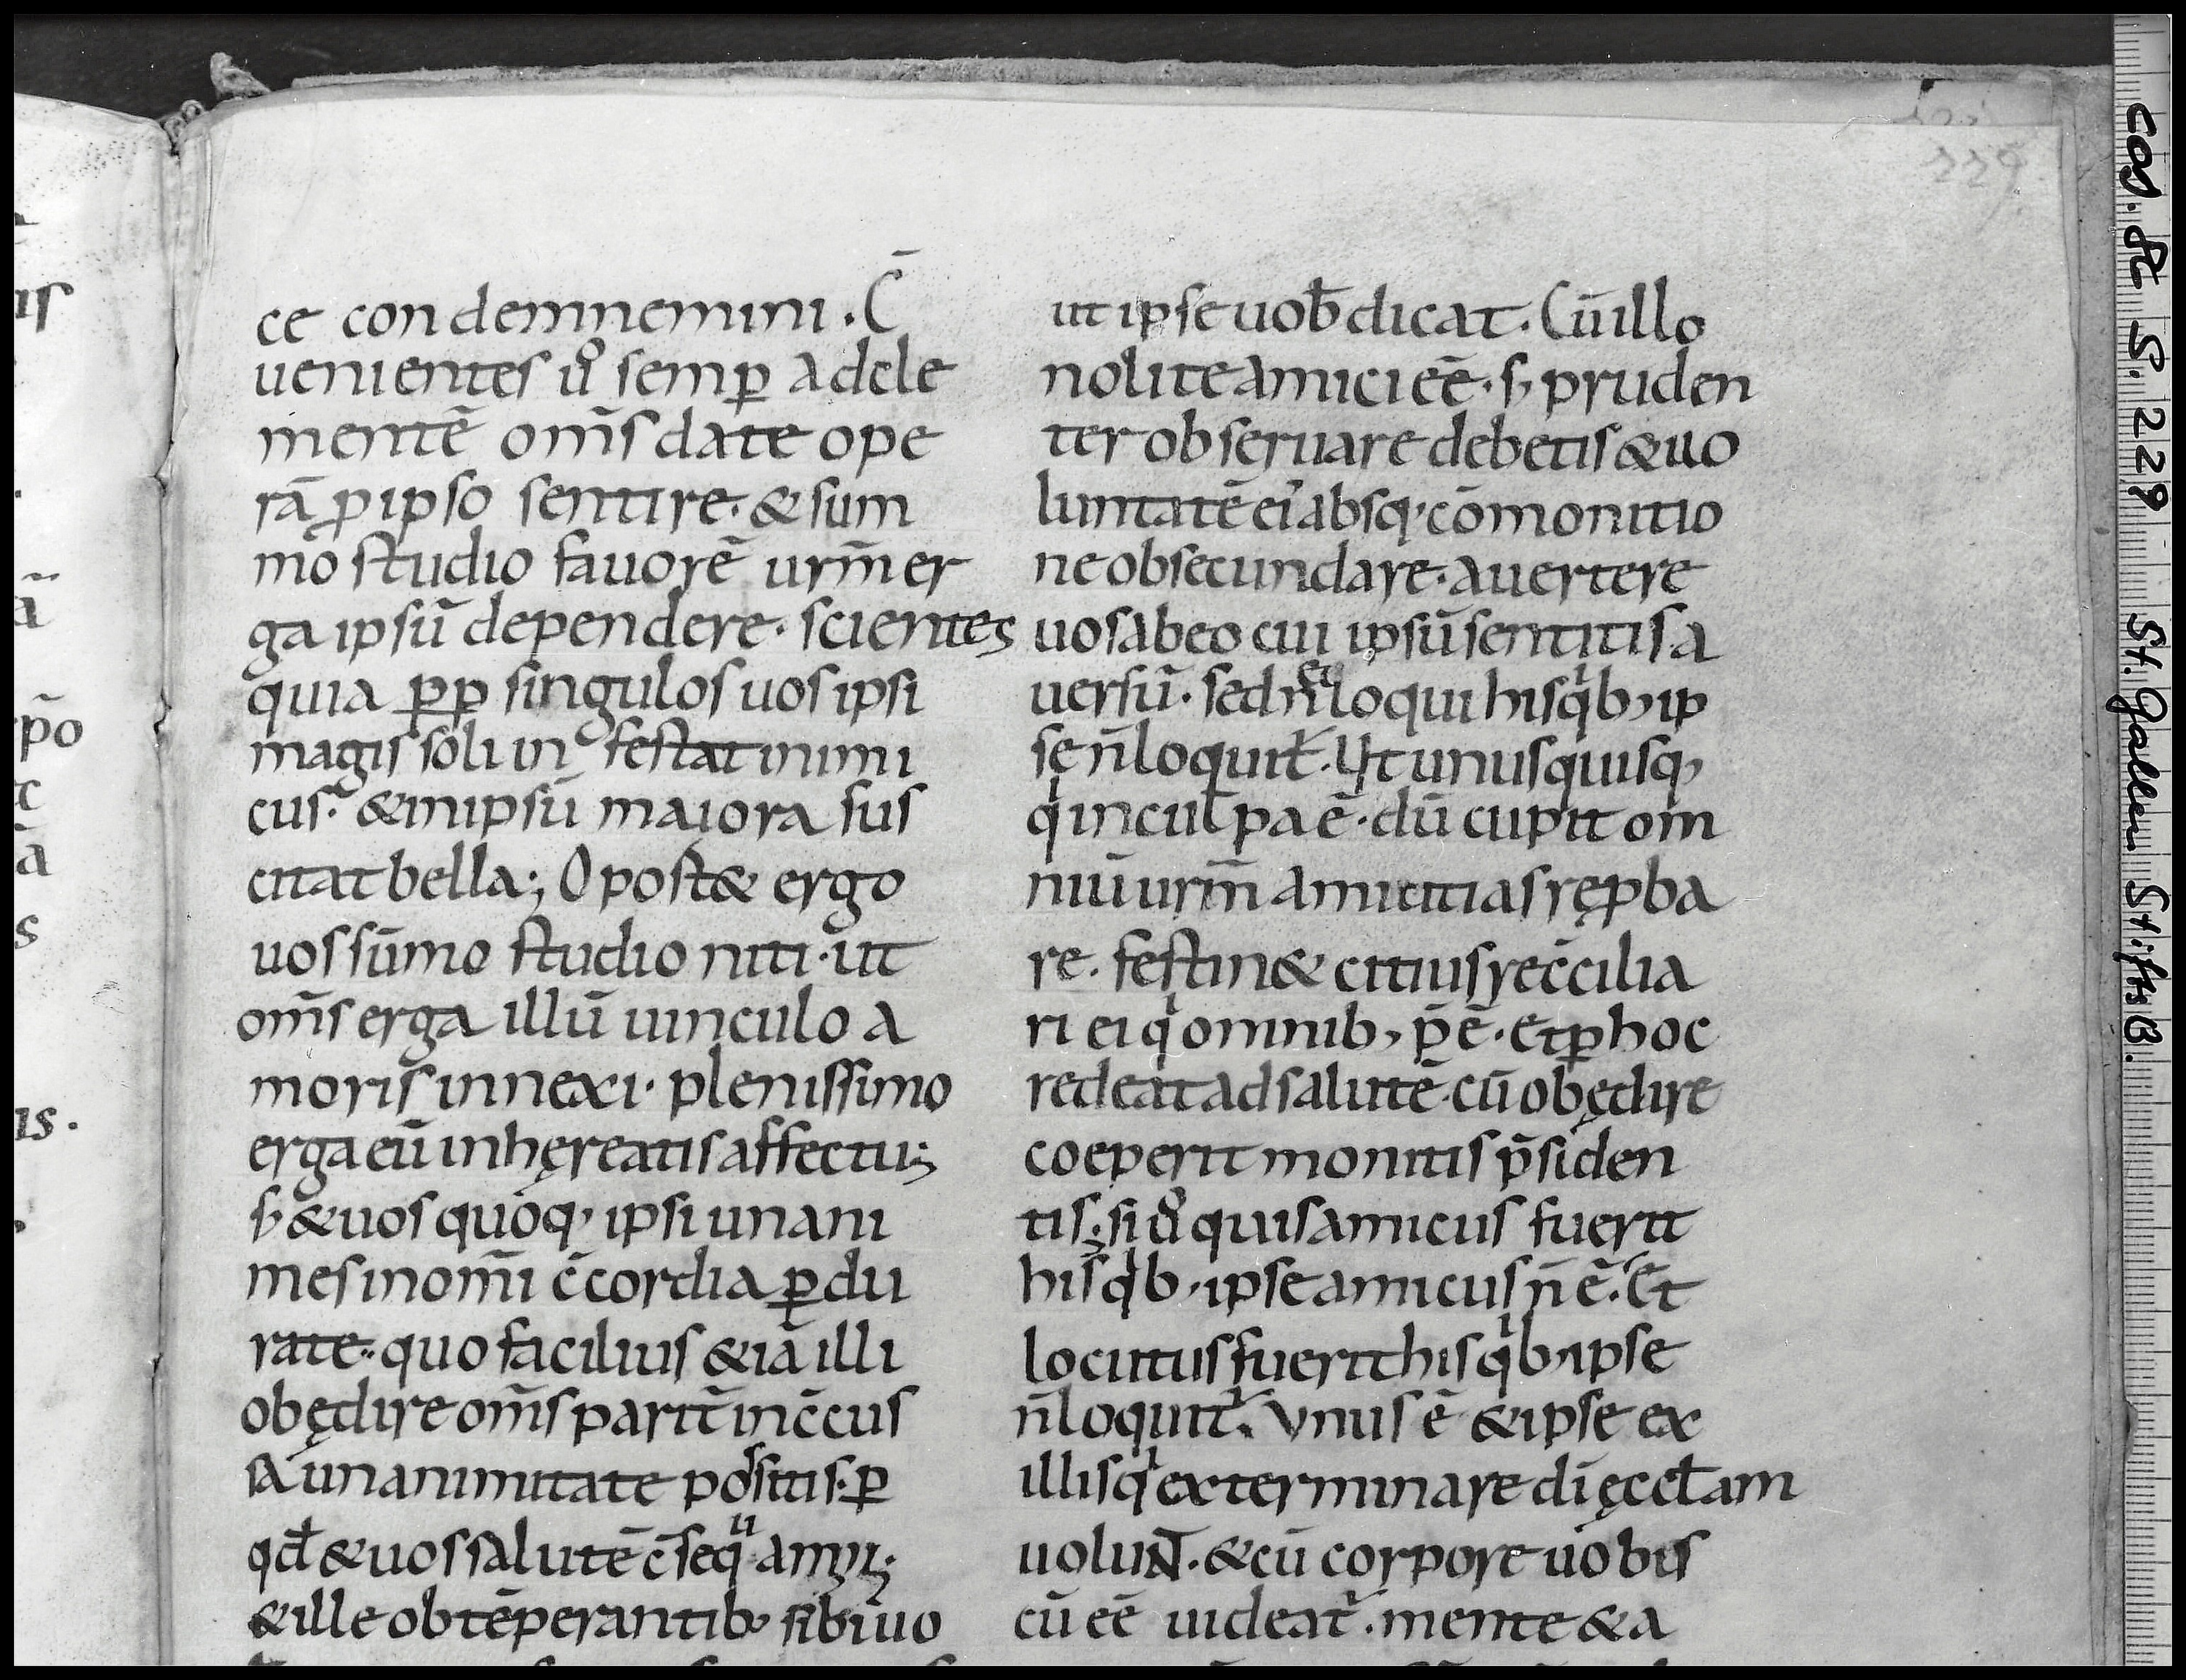 ce condemnemini. C̄
uenientes u͛o semꝑ adcle
mentē om̄s date ope
rā ꝓ ipso sentire. & sum
mo studio fauorē urm̄ er
ga ipsū dependere. scientes
quia ꝓꝑ singulos uos ipsi
magis soli infestat inimi
cus. & in ipsū maiora sus
citat bella; Oportet& ergo
uos sūmo studio niti. ut
om̄s erga illū uinculo a
moris innexi. plenissimo
erga eū inhęreatis affectu;
s; & uos quoq; ipsi unani
mes in om̄i c̄cordia ꝑdu
rate. quo facilius &iā illi
obędire om̄s parit̄ in c̄cus
sa unanimitate possitis. ꝑ
qd̄ & uos salutē c̄sequamini.
& ille obtēperantib; sibi uo
ut ipse uob̄ dicat. Cū illo
nolite amici eē. s; pruden
ter obseruare debetis & uo
luntatē ei' absq; cōmonitio
ne obsecundare. auertere
uos ab eo cui ipsū sentitis a
uersū. sed n̄ loqui his qib; ip
se n̄ loquit̄. Ut unusquisq;
qi in culpa ē. dū cupit om
niū urm̄ amicitias ręꝓba
re. festin& citius rec̄cilia
ri ei qi omnib; p̄ ē. Et ꝑ hoc
redeat ad salutē. cū obędire
coeperit monitis p̄siden
tis; si u͛o quis amicus fuerit
his qib; ipse amicus n̄ ē. Et
locutus fuerit his qib; ipse
n̄ loquit̄. Vnus ē & ipse ex
illis qi exterminare dī ęcclam
uoluNT. & cū corpore uobis
cū eē uideat̄. mente & a
is
a
po
c
ā
s
is.
229
Cod. St. G. 229 St. Gallen StiftsB.